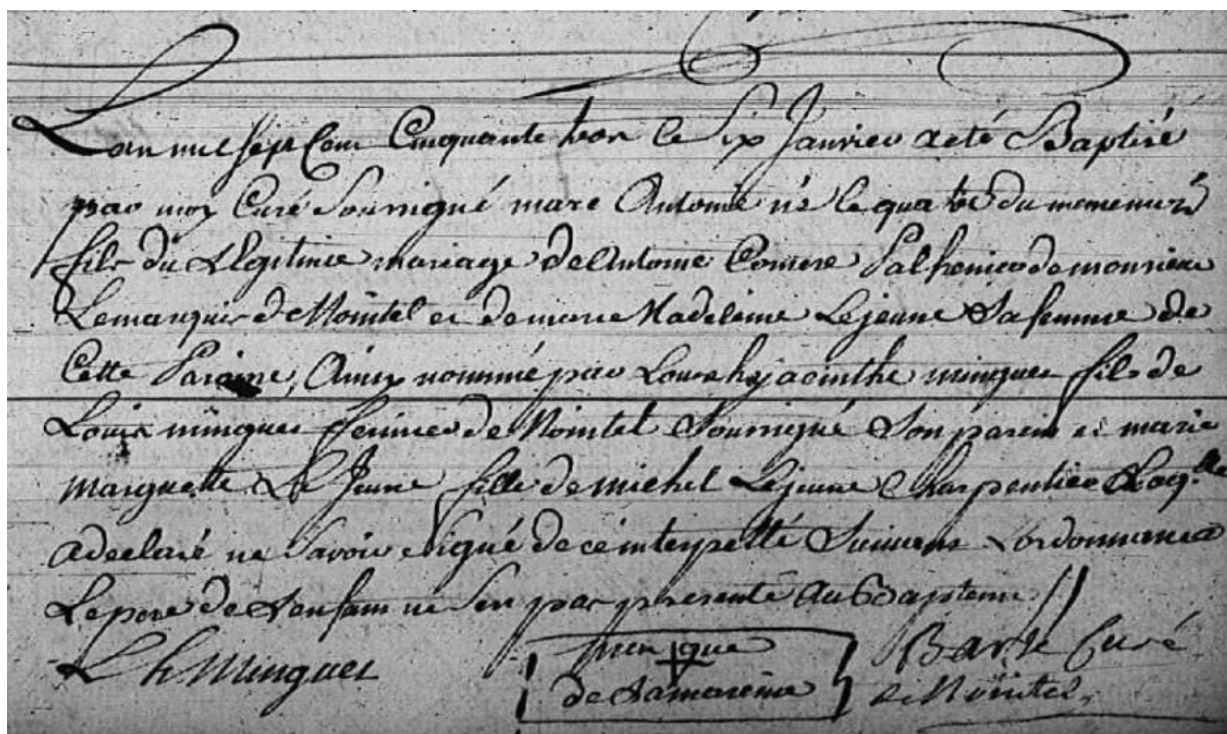 Lan mil sept Cent Cinquante trois le Six Janvier a eté Baptisé
par moy Curé Soussigné marc Antoine né le quatre du meme mois
fils du Legitime mariage de Antoine Palfrenier de monsieur
Le marquis de Nointel et de marie Madeleine Lejeune Sa femme de
Cette Paroisse, Ainsy nommé par Louis hyacinthe minguet fils de
Louis minguet de Nointel Soussigné Son parein et marie
marguette Le Jeune fille de michel Lejeune Charpentier Laq.lle
a declaré ne Savoir Signé de ce interpellé Suivant Lordonnance
Le pere de Lenfant ne Sen pas presenté Au Bapteme //
L h Minguet
marque
de La mareine
Curé
de Nointel.